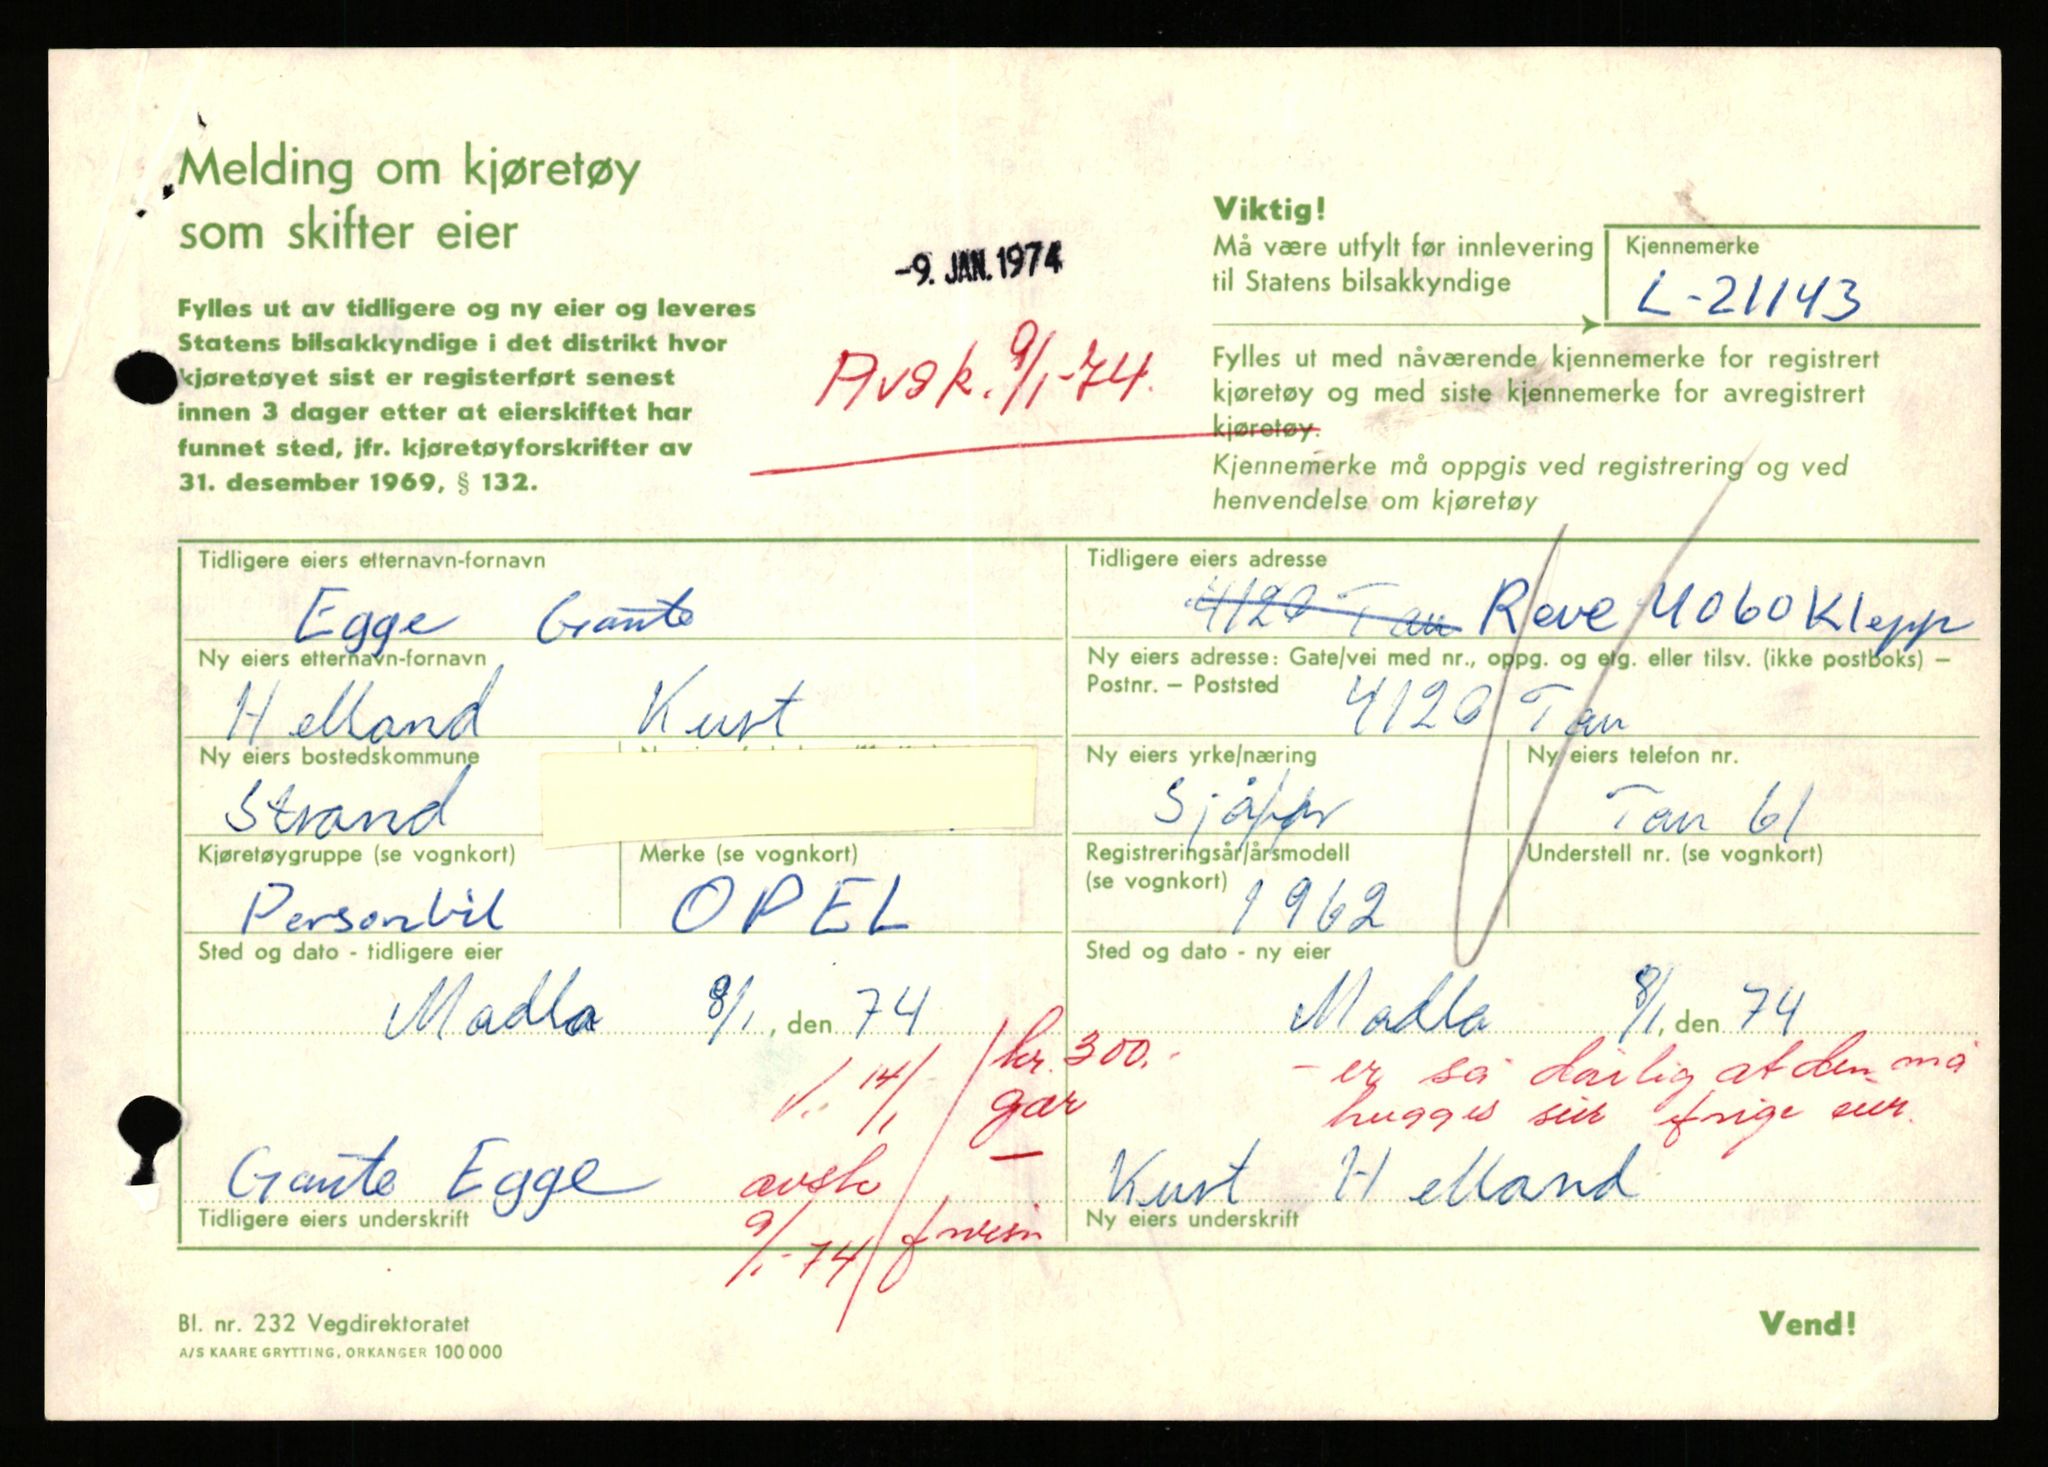 Melding om kjøretøy
som skifter eier
Fylles ut av tidligere og ny eier og leveres
Statens bilsakkyndige i det distrikt hvor
kjøretøyet sist er registerført senest
innen 3 dager etter at eierskiftet har
funnet sted, jfr. kjøretøyforskrifter av
31. desember 1969, § 132.
-9. JAN. 1974
Avsk. 9/1-74.
Viktig!
Må være utfylt før innlevering
til Statens bilsakkyndige
Kjennemerke
L-21143
Fylles ut med nåværende kjennemerke for registrert
kjøretøy og med siste kjennemerke for avregistrert
kjøretøy.
Kjennemerke må oppgis ved registrering og ved
henvendelse om kjøretøy
Tidligere eiers etternavn-fornavn
Egge Gaute
Tidligere eiers adresse
4120 Tau Reve 4060 Klepp
Ny eiers etternavn-fornavn
Helland Kurt
Ny eiers adresse: Gate/vei med nr., oppg. og etg. eller tilsv. (ikke postboks) –
Postnr. – Poststed
4120 Tau
Ny eiers bostedskommune
Strand
Ny eiers yrke/næring
Sjåfør
Ny eiers telefon nr.
Tau 61
Kjøretøygruppe (se vognkort)
Personbil
Merke (se vognkort)
OPEL
Registreringsår/årsmodell
(se vognkort)
1962
Understell nr. (se vognkort)
Sted og dato - tidligere eier
Madla 8/1, den 74
Sted og dato - ny eier
Madla 8/1, den 74
14/1
kr. 300.-
gar
- er så dårlig at den må
hugges sier frige eier.
Gaute Egge
Tidligere eiers underskrift
avsk
9/1-74
Kurt Helland
Ny eiers underskrift
Bl. nr. 232 Vegdirektoratet
A/S KAARE GRYTTING, ORKANGER 100 000
Vend!